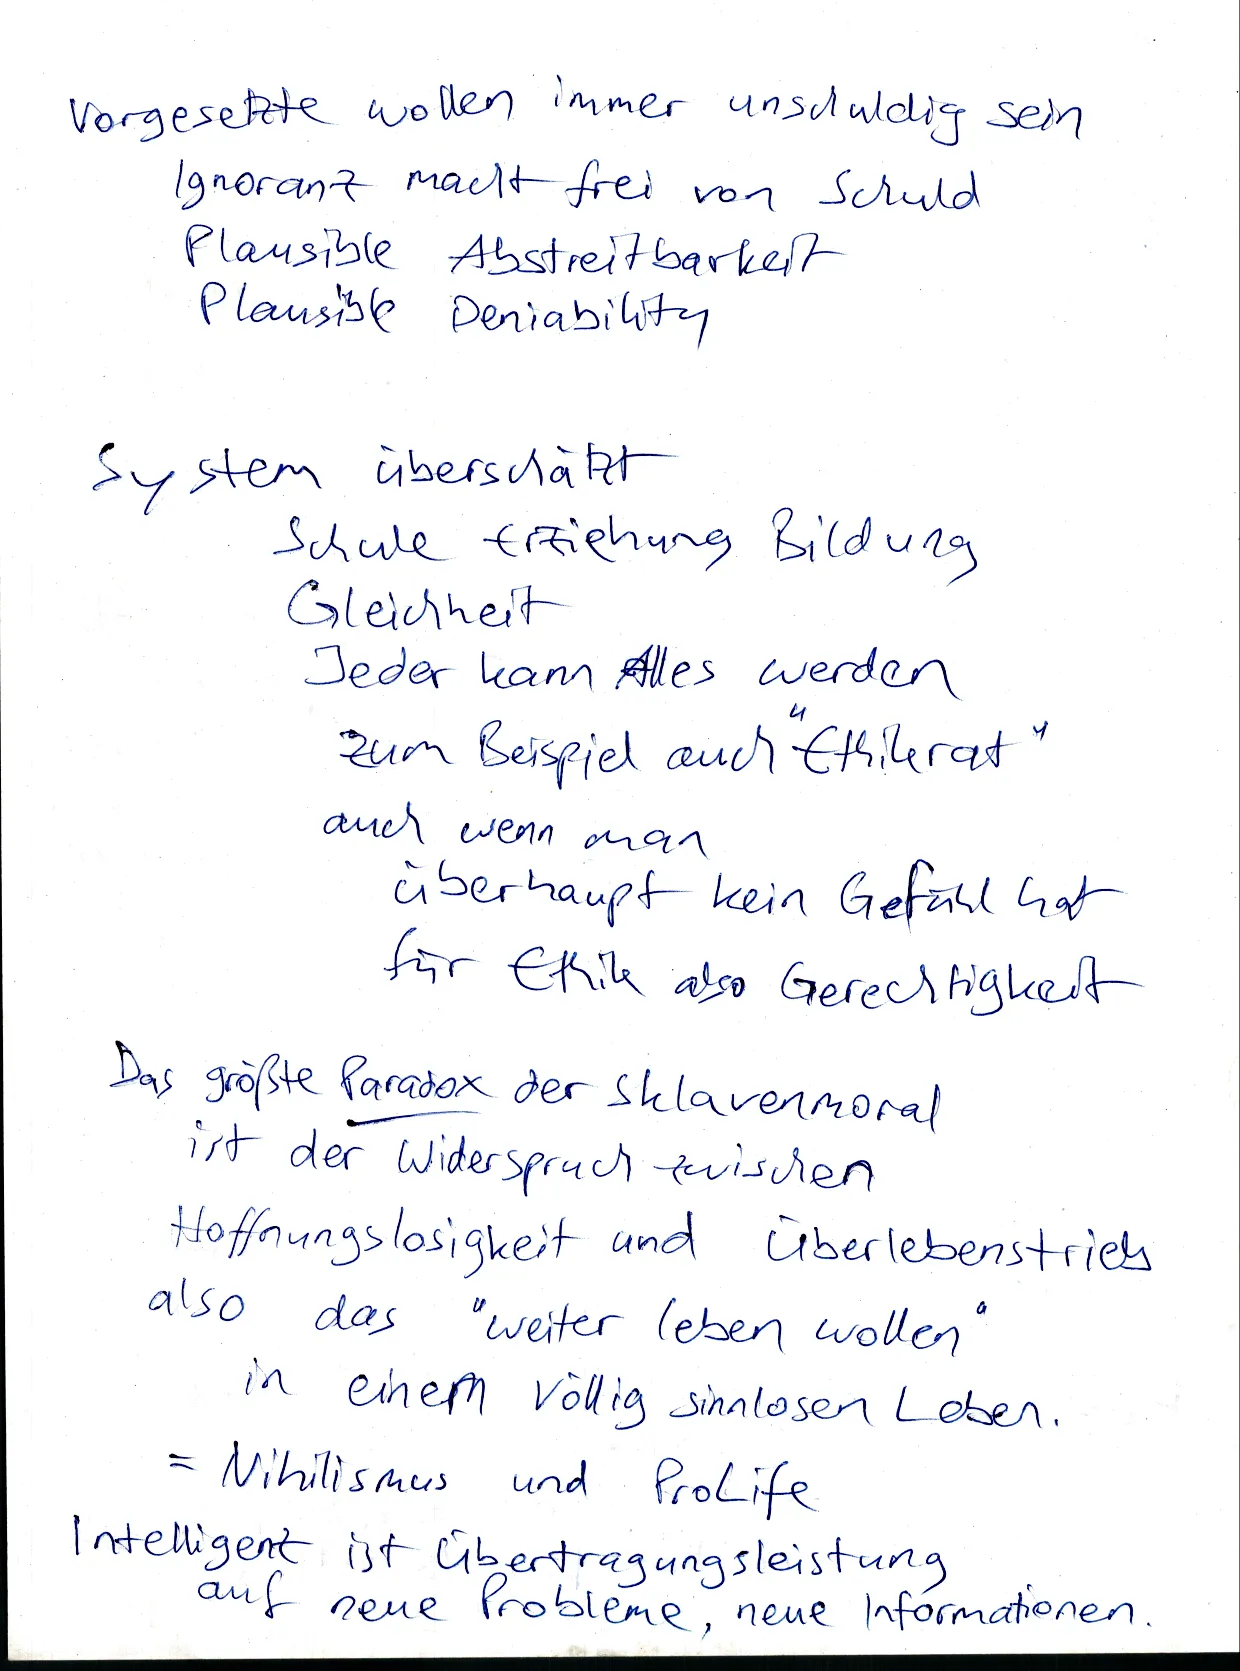 Vorgesetzte wollen immer unschuldig sein
Ignoranz macht frei von Schuld
Plausible Abstreitbarkeit
Plausible Deniability
System überschätzt
Schule Erziehung Bildung
Gleichheit
Jeder kann Alles werden
zum Beispiel auch "Ethikrat"
auch wenn man
überhaupt kein Gefühl hat
für Ethik also Gerechtigkeit
Das größte Paradox der Sklavenmoral
ist der Widerspruch zwischen
Hoffnungslosigkeit und Überlebenstrieb
also das "weiter leben wollen"
in einem völlig sinnlosen Leben.
= Nihilismus und ProLife
Intelligenz ist Übertragungsleistung
auf neue Probleme, neue Informationen.